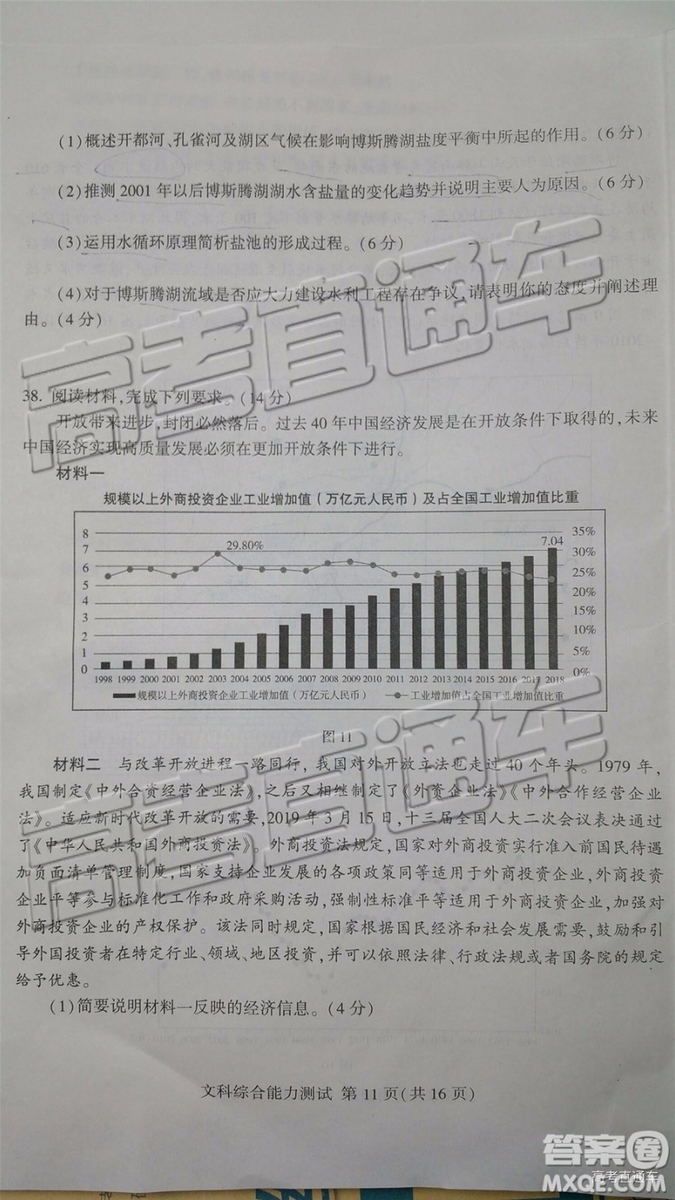 (1)概述开都河、孔雀河及湖区气候在影响博斯腾湖盐度平衡中所起的作用。(6 分)
(2)推测 2001 年以后博斯腾湖湖水含盐量的变化趋势并说明主要人为原因。(6 分)
(3)运用水循环原理简析盐池的形成过程。(6 分)
(4)对于博斯腾湖流域是否应大力建设水利工程存在争议,请表明你的态度并阐述理
由。(4 分)
38. 阅读材料,完成下列要求。(14 分)
开放带来进步,封闭必然落后。过去 40 年中国经济发展是在开放条件下取得的,未来
中国经济实现高质量发展必须在更加开放条件下进行。
材料一
规模以上外商投资企业工业增加值(万亿元人民币)及占全国工业增加值比重
8 7 6 5 4 3 2 1 0
29.80%
7.04
35% 30% 25% 20% 15% 10% 5% 0%
1998 1999 2000 2001 2002 2003 2004 2005 2006 2007 2008 2009 2010 2011 2012 2013 2014 2015 2016 2017 2018
规模以上外商投资企业工业增加值(万亿元人民币) 工业增加值占全国工业增加值比重
图 11
材料二 与改革开放进程一路同行,我国对外开放立法也走过 40 个年头。1979 年,
我国制定《中外合资经营企业法》,之后又相继制定了《外资企业法》《中外合作经营企业
法》。适应新时代改革开放的需要,2019 年 3 月 15 日,十三届全国人大二次会议表决通过
了《中华人民共和国外商投资法》。外商投资法规定,国家对外商投资实行准入前国民待遇
加负面清单管理制度,国家支持企业发展的各项政策同等适用于外商投资企业,外商投资
企业平等参与标准化工作和政府采购活动,强制性标准平等适用于外商投资企业,加强对
外商投资企业的产权保护。该法同时规定,国家根据国民经济和社会发展需要,鼓励和引
导外国投资者在特定行业、领域、地区投资,并可以依照法律、行政法规或者国务院的规定
给予优惠。
(1)简要说明材料一反映的经济信息。(4 分)
文科综合能力测试 第 11 页(共 16 页)
高考直通车
高考直通车
答案圈
高考直通车
MXQE.COM